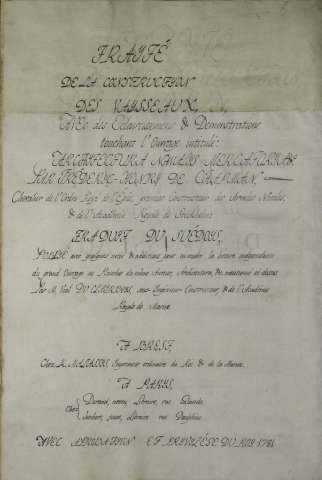 TRAITÉ
DE LA CONSTRUCTION
DES VAISSEAUX,
Avec des Eclaircissemens & Demonstrations
touchant l'Ouvrage intitulé:
ARCHITECTURA NAVALIS MERCATORIA &c
PAR FRÉDERIC-HENRY DE CHAPMAN,
Chevalier de l'Ordre Royal de l'Epée, premier Constructeur des Armées Navales,
& de l'Académie Royale de Stockholm
TRADUIT DU SUÉDOIS,
PUBLIÉ avec quelques notes & additions pour en rendre la lecture indépendante
du grand Ouvrage en Planches du même Auteur,
Par M. Vial DU CLAIRBOIS, sous-Ingénieur-Constructeur, & de l'Académie
Royale de Marine
A BREST,
Chez R. MALASSIS, Imprimeur ordinaire du Roi & de la Marine.
A PARIS,
Chez Durand, neveu, Libraire, rue Galande.
Jombert, jeune, Libraire rue Dauphine.
AVEC APPROBATION ET PRIVILÉGE DU ROI 1781